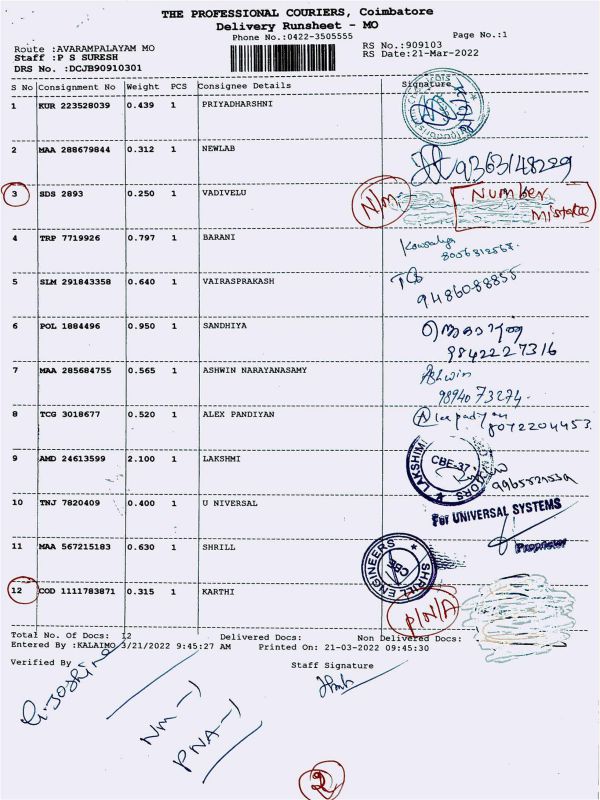 THE PROFESSIONAL COURIERS, Coimbatore
Delivery Runsheet - MO
Phone No.:0422-3505555
Page No.:1
Route :AVARAMPALAYAM MO
RS No.:909103
Staff :P S SURESH
RS Date:21-Mar-2022
DRS No. :DCJB90910301
S No Consignment No Weight PCS Consignee Details Signature
1 KUR 223528039 0.439 1 PRIYADHARSHNI
2 MAA 288679844 0.312 1 NEWLAB 9363148229
3 SDS 2893 0.250 1 VADIVELU N/M Number Mistake
4 TRP 7719926 0.797 1 BARANI Kowsalya
5 SLM 291843358 0.640 1 VAIRASPRAKASH 9486088855
6 POL 1884496 0.950 1 SANDHIYA 9842227316
7 MAA 285684755 0.565 1 ASHWIN NARAYANASAMY Ashwin 9894073274
8 TCG 3018677 0.520 1 ALEX PANDIYAN 8072204453
9 AMD 24613599 2.100 1 LAKSHMI LAKSHMI MOTORS CBE-37
10 TNJ 7820409 0.400 1 U NIVERSAL For UNIVERSAL SYSTEMS
Proprietor
11 MAA 567215183 0.630 1 SHRILL SHRILL ENGINEERS CBE
12 COD 1111783871 0.315 1 KARTHI P/N/A
Total No. Of Docs: 12 Delivered Docs: Non Delivered Docs:
Entered By :KALAIMO 3/21/2022 9:45:27 AM Printed On: 21-03-2022 09:45:30
Verified By Staff Signature
NM -1
PNA -1
2